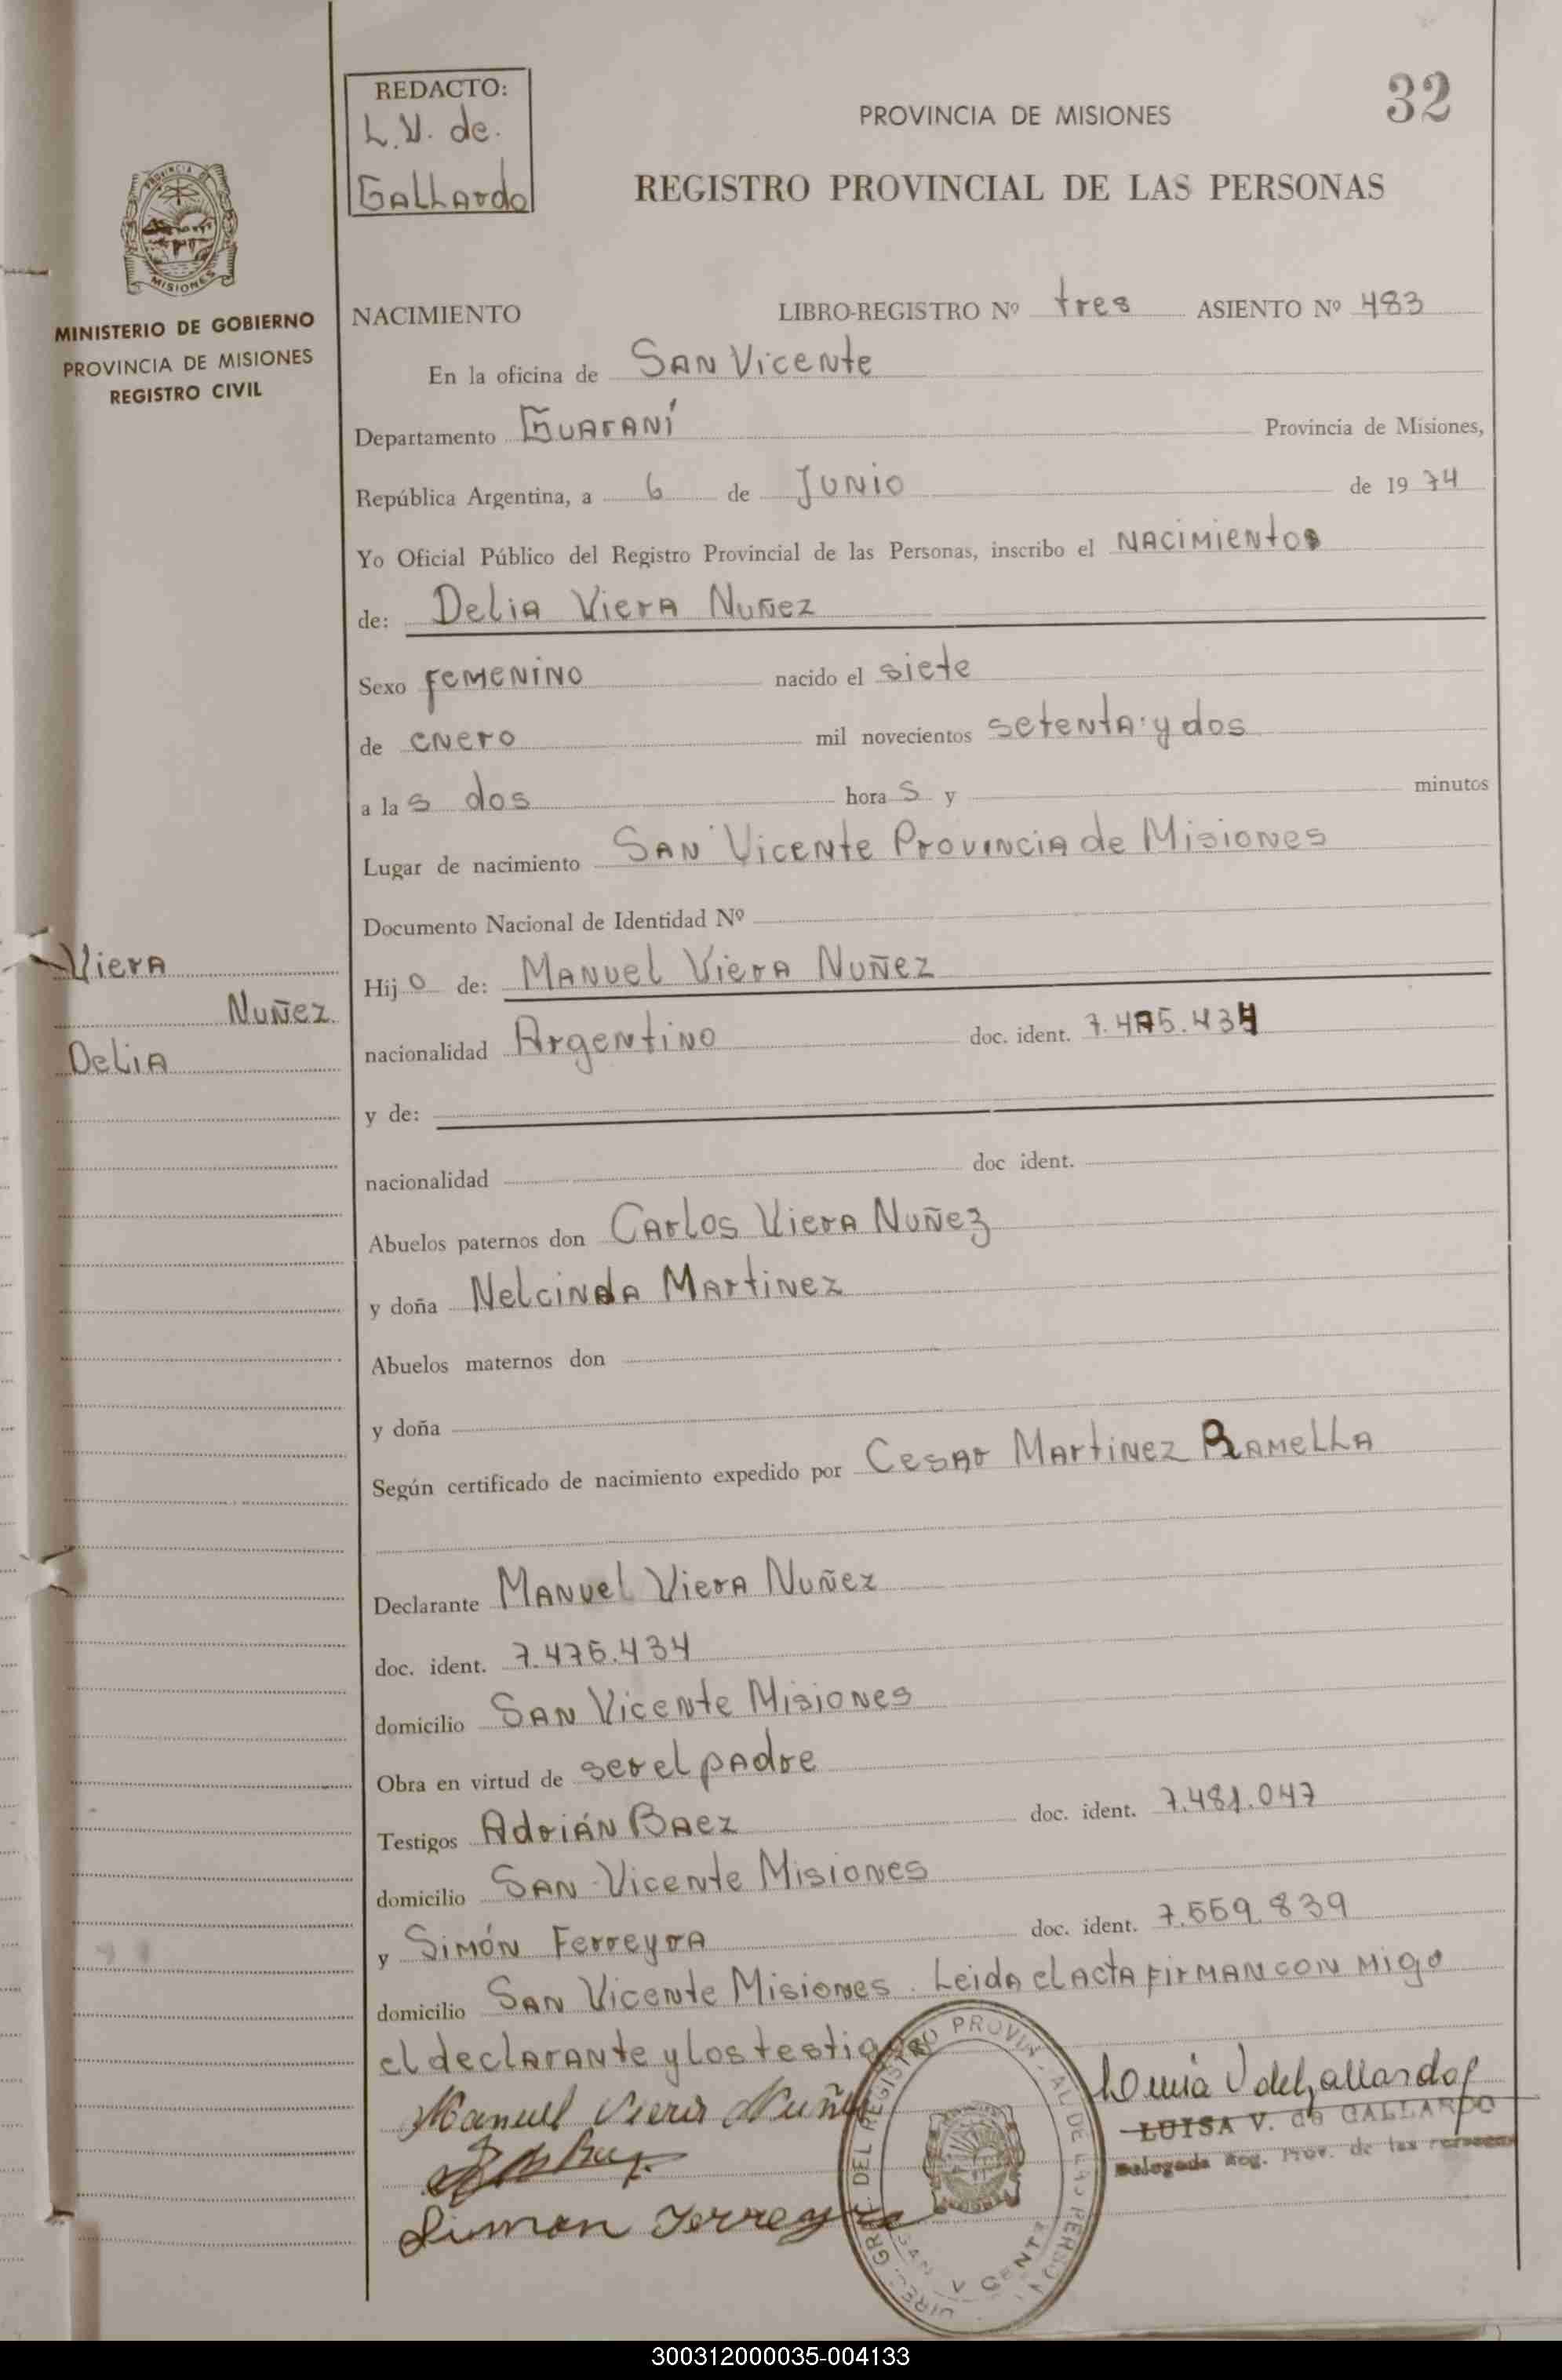 32
REDACTO:
L.V. de.
Gallardo
PROVINCIA DE MISIONES
REGISTRO PROVINCIAL DE LAS PERSONAS
PROVINCIA DE
MISIONES
MINISTERIO DE GOBIERNO
PROVINCIA DE MISIONES
REGISTRO CIVIL
NACIMIENTO LIBRO-REGISTRO Nº tres ASIENTO Nº 483
En la oficina de San Vicente
Departamento Guaraní Provincia de Misiones,
República Argentina, a 6 de Junio de 1974
Yo Oficial Público del Registro Provincial de las Personas, inscribo el Nacimiento
de: Delia Viera Nuñez
Sexo femenino nacido el siete
de enero mil novecientos setenta y dos
a las dos horas y minutos
Lugar de nacimiento San Vicente Provincia de Misiones
Documento Nacional de Identidad Nº
Viera
Nuñez
Delia
Hijo de: Manuel Viera Nuñez
nacionalidad Argentino doc. ident. 7.475.434
y de:
nacionalidad doc ident.
Abuelos paternos don Carlos Viera Nuñez
y doña Nelcinda Martinez
Abuelos maternos don
y doña
Según certificado de nacimiento expedido por Cesar Martinez Ramella
Declarante Manuel Viera Nuñez
doc. ident. 7.475.434
domicilio San Vicente Misiones
Obra en virtud de ser el padre
Testigos Adrián Baez doc. ident. 7.481.047
domicilio San Vicente Misiones
y Simón Ferreyra doc. ident. 7.559.839
domicilio San Vicente Misiones. Leida el acta firman con migo
el declarante y los testigos
Manuel Viera Nuñez
Simon Ferreyra
Luisa V de Gallardo
LUISA V. de GALLARDO
Delegada Reg. Prov. de las Personas
DIREC. GRAL. DEL REGISTRO PROVINCIAL DE LAS PERSONAS
SAN VICENTE
300312000035-004133